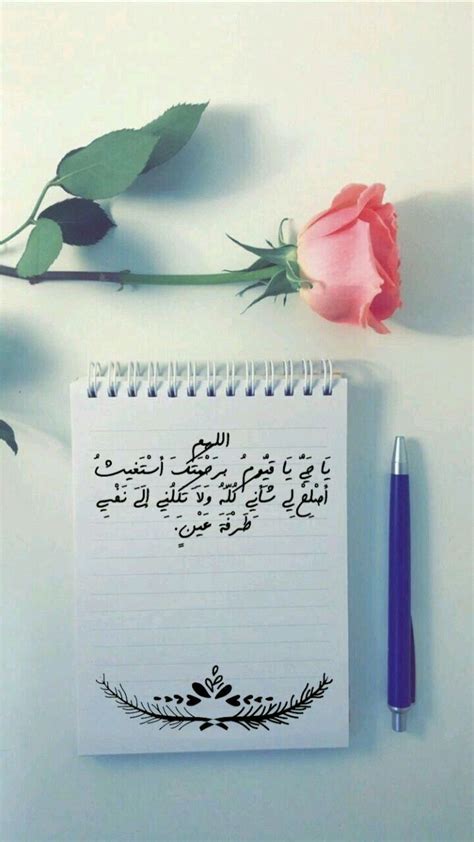 اللهم
يَا حَيُّ يَا قَيُّومُ بِرَحْمَتِكَ أَسْتَغِيثُ
أَصْلِحْ لِي شَأْنِي كُلَّهُ وَلَا تَكِلْنِي إِلَى نَفْسِي
طَرْفَةَ عَيْنٍ.